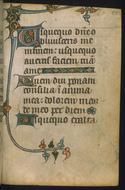 Usquequo dñe o
bliuisceris me
in finem: usquequo
auertis faciem tuā
a me
Quam diu ponam
consilia ī anima
mea: dolorem in cor
de meo per diem
Usquequo exalta